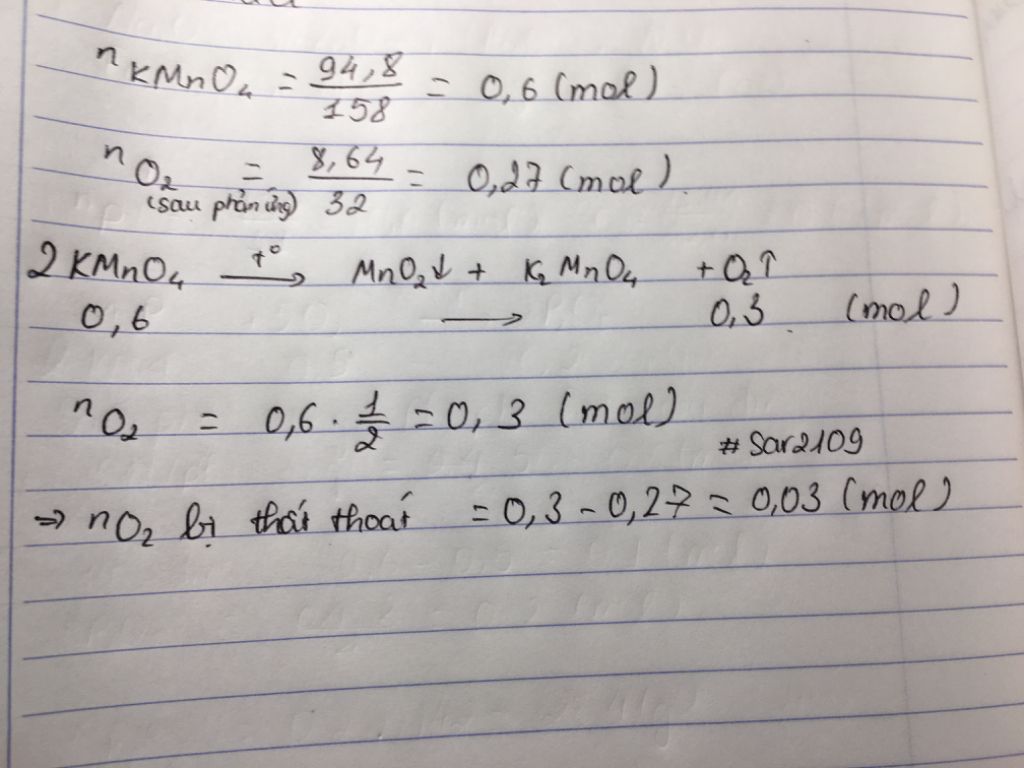 nKMnO₄ = 94,8/158 = 0,6 (mol)
nO₂ = 8,64/32 = 0,27 (mol).
(sau phản ứng)
2KMnO₄ —t°→ MnO₂↓ + K₂MnO₄ + O₂↑
0,6 → 0,3 (mol)
nO₂ = 0,6 · 1/2 = 0,3 (mol)
# Sar2109
⇒ nO₂ bị thất thoát = 0,3 - 0,27 = 0,03 (mol)